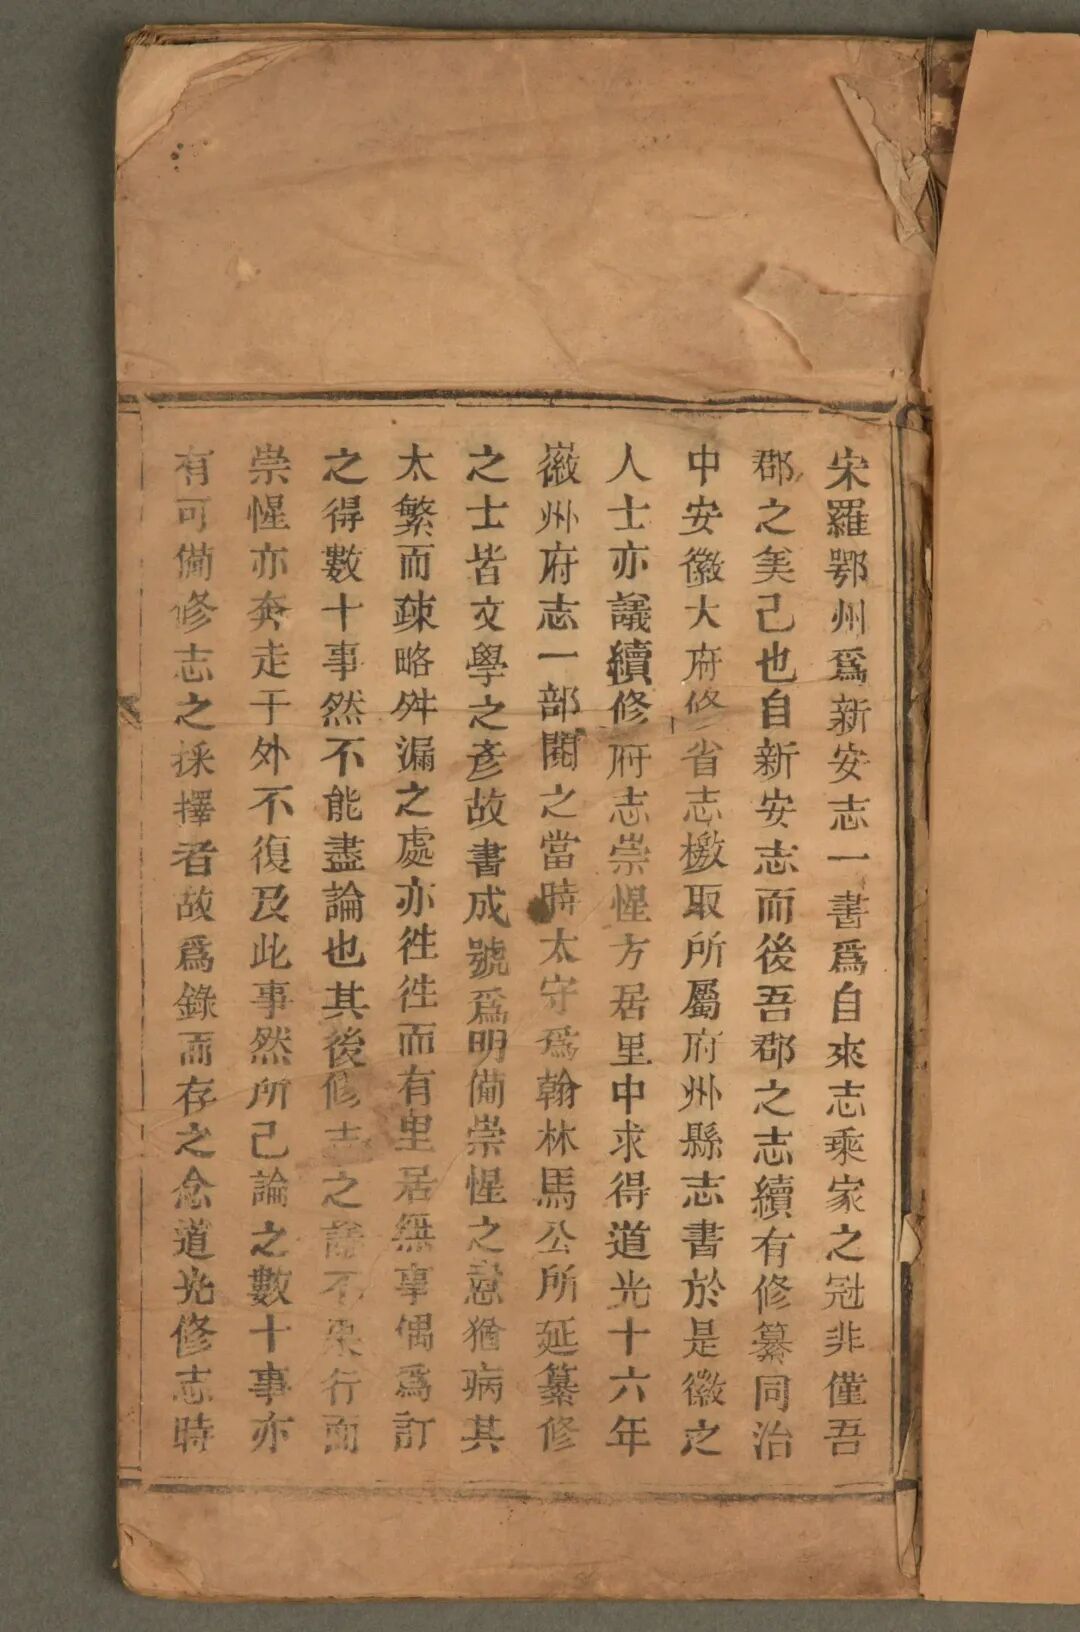 宋羅鄂州爲新安志一書爲自來志乘家之冠非僅吾
郡之美己也自新安志而後吾郡之志續有修纂同治
中安徽大府修省志檄取所屬府州縣志書於是徽之
人士亦議續修府志崇惺方居里中求得道光十六年
徽州府志一部閱之當時太守爲翰林馬公所延纂修
之士皆文學之彥故書成號爲明備崇惺之意猶病其
太繁而疎略舛漏之處亦徃徃而有里居無事偶爲訂
之得數十事然不能盡論也其後修志之議不果行而
崇惺亦奔走于外不復及此事然所己論之數十事亦
有可備修志之採擇者故爲錄而存之念道光修志時